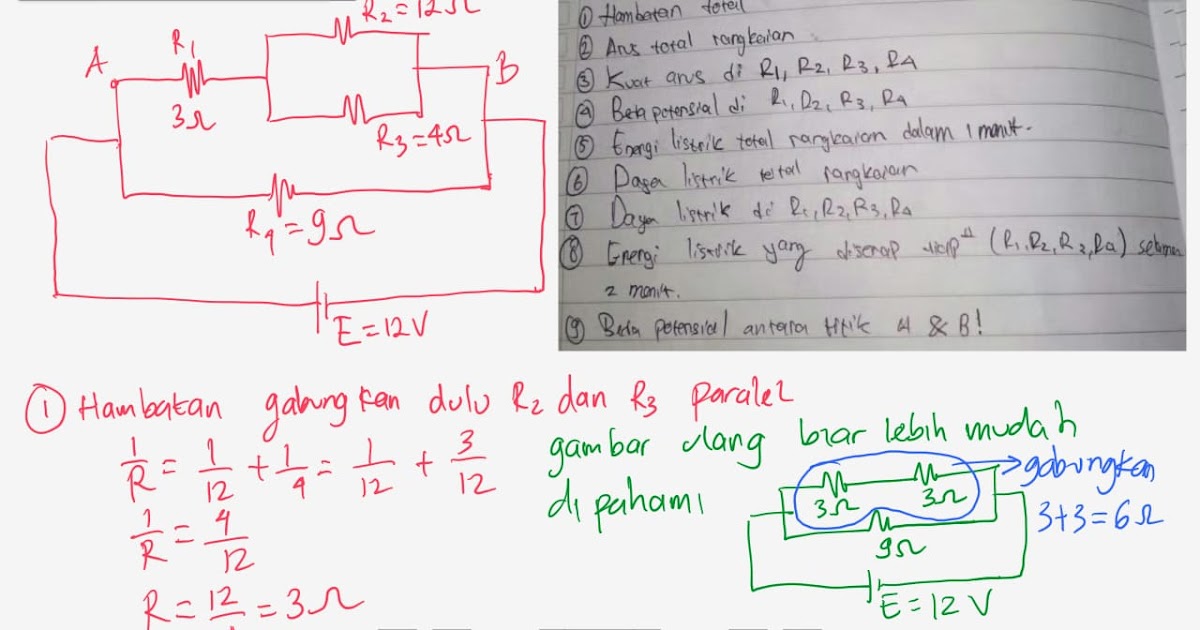 R2=12Ω
A
R1
3Ω
B
R3=4Ω
R4=9Ω
E=12V
① Hambatan total
② Arus total rangkaian
③ Kuat arus di R1, R2, R3, R4
④ Beda potensial di R1, R2, R3, R4
⑤ Energi listrik total rangkaian dalam 1 menit.
⑥ Daya listrik total rangkaian
⑦ Daya listrik di R1, R2, R3, R4
⑧ Energi listrik yang diserap (R1, R2, R3, R4) selama
2 menit.
⑨ Beda potensial antara titik A & B!
① Hambatan gabungkan dulu R2 dan R3 paralel
1/R = 1/12 + 1/4 = 1/12 + 3/12
1/R = 4/12
R = 12/4 = 3Ω
gambar ulang biar lebih mudah
di pahami
gabungkan
3+3=6Ω
3Ω
3Ω
9Ω
E=12V